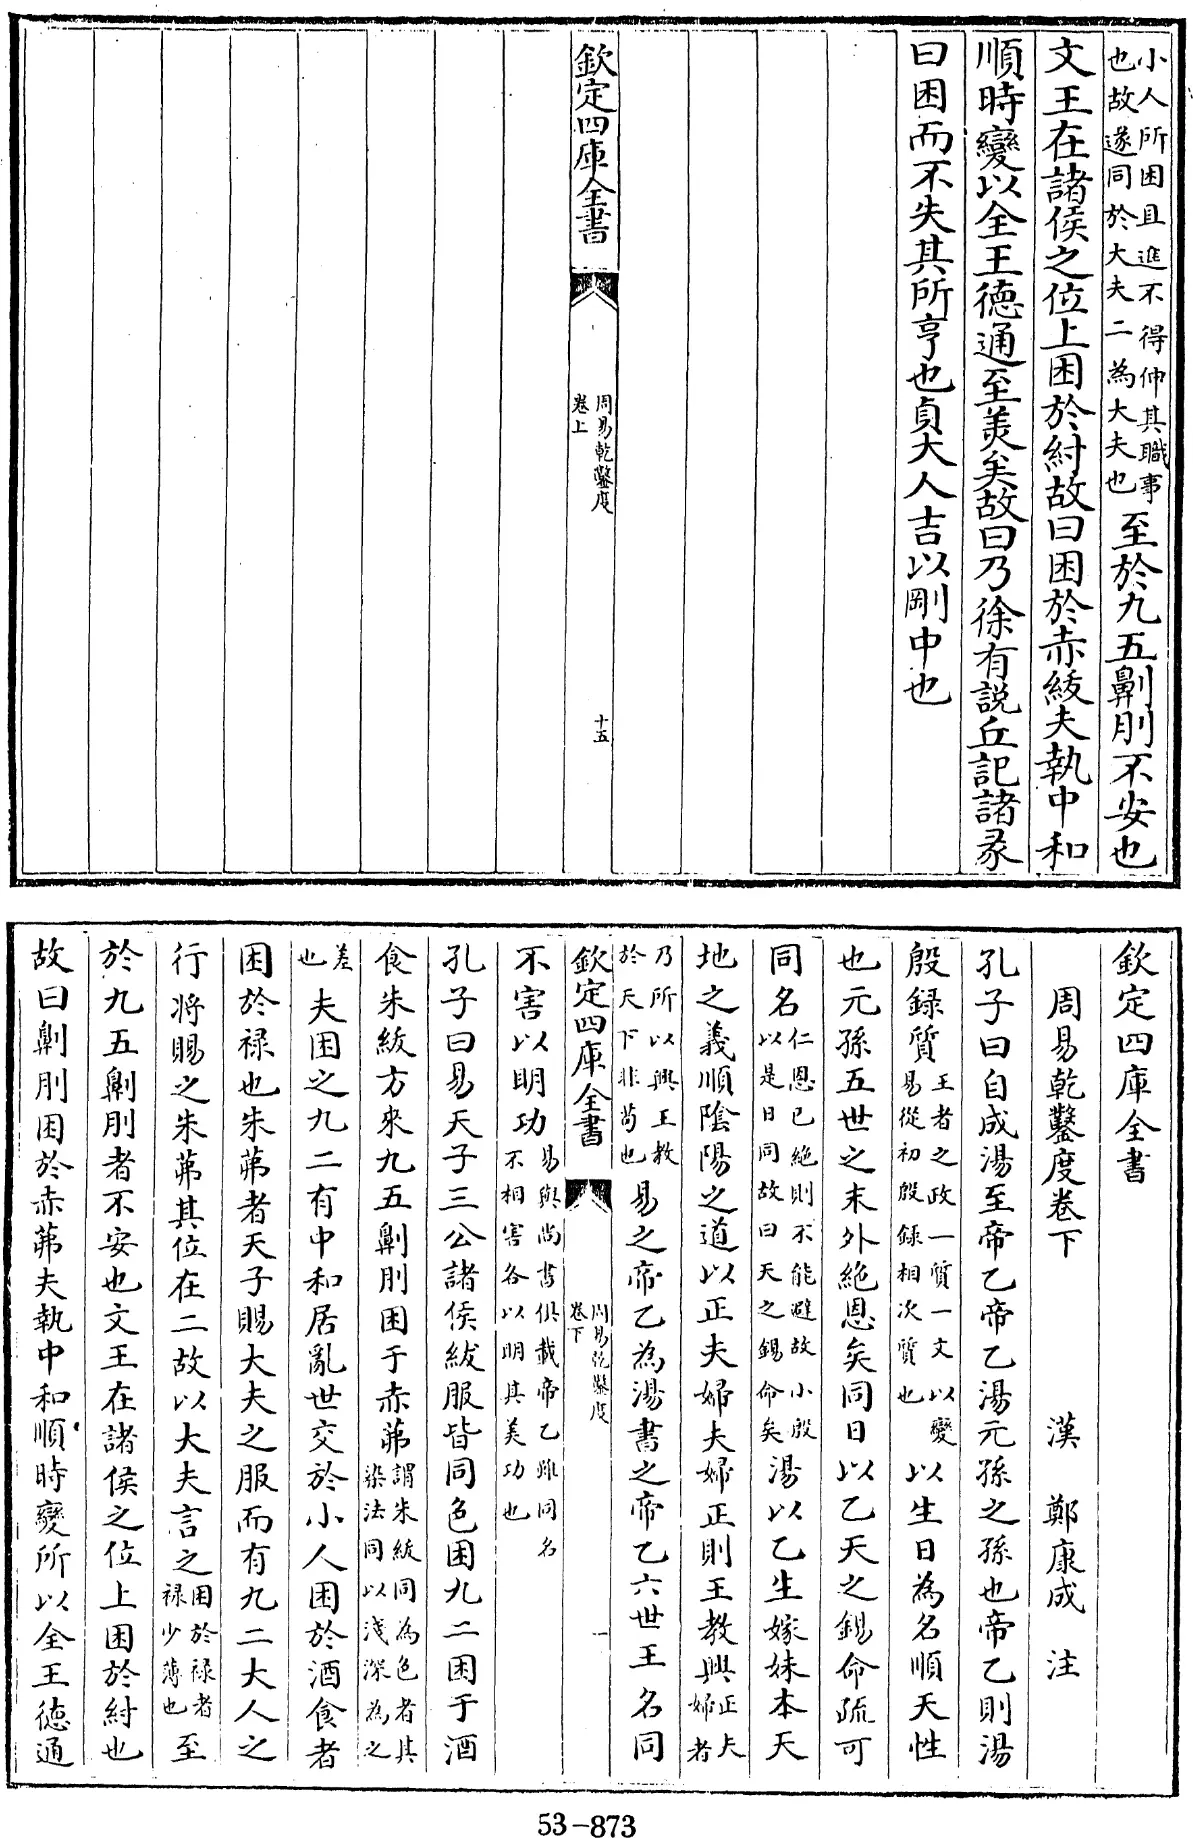 小人所困且進不得伸其職事
也故遂同於大夫二為大夫也
至於九五劓刖不安也
文王在諸侯之位上困於紂故曰困於赤紱夫執中和
順時變以全王德通至美矣故曰乃徐有説丘記諸彖
曰困而不失其所亨也貞大人吉以剛中也
欽定四庫全書
周易乾鑿度
卷上
十五
欽定四庫全書
周易乾鑿度卷下
漢 鄭康成 注
孔子曰自成湯至帝乙帝乙湯元孫之孫也帝乙則湯
殷録質
王者之政一質一文以變
易從初殷録相次質也
以生日為名順天性
也元孫五世之末外絶恩矣同日以乙天之錫命疏可
同名
仁恩已絶則不能避故小殷
以是日同故曰天之錫命矣
湯以乙生嫁妹本天
地之義順陰陽之道以正夫婦夫婦正則王教興
正夫
婦者
乃所以興王教
於天下非茍也
易之帝乙為湯書之帝乙六世王名同
欽定四庫全書
周易乾鑿度
卷下
一
不害以明功
易與尚書俱載帝乙雖同名
不相害各以明其美功也
孔子曰易天子三公諸侯紱服皆同色困九二困于酒
食朱紱方來九五劓刖困于赤茀
謂朱紱同為色者其
染法同以淺深為之
差
也
夫困之九二有中和居亂世交於小人困於酒食者
困於禄也朱茀者天子賜大夫之服而有九二大人之
行將賜之朱茀其位在二故以大夫言之
困於禄者
禄少薄也
至
於九五劓刖者不安也文王在諸侯之位上困於紂也
故曰劓刖困於赤茀夫執中和順時變所以全王德通
53-873